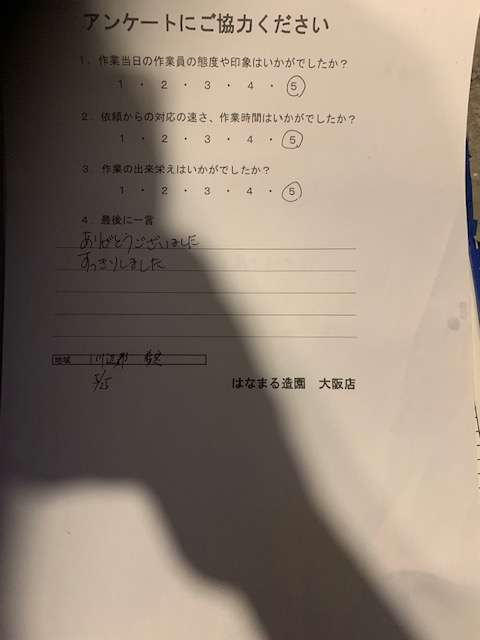 アンケートにご協力ください
1．作業当日の作業員の態度や印象はいかがでしたか？
1 ・ 2 ・ 3 ・ 4 ・ 5
2．依頼からの対応の速さ、作業時間はいかがでしたか？
1 ・ 2 ・ 3 ・ 4 ・ 5
3．作業の出来栄えはいかがでしたか？
1 ・ 2 ・ 3 ・ 4 ・ 5
4．最後に一言
ありがとうございました
すっきりしました
地域 川辺郡
5/25
はなまる造園 大阪店